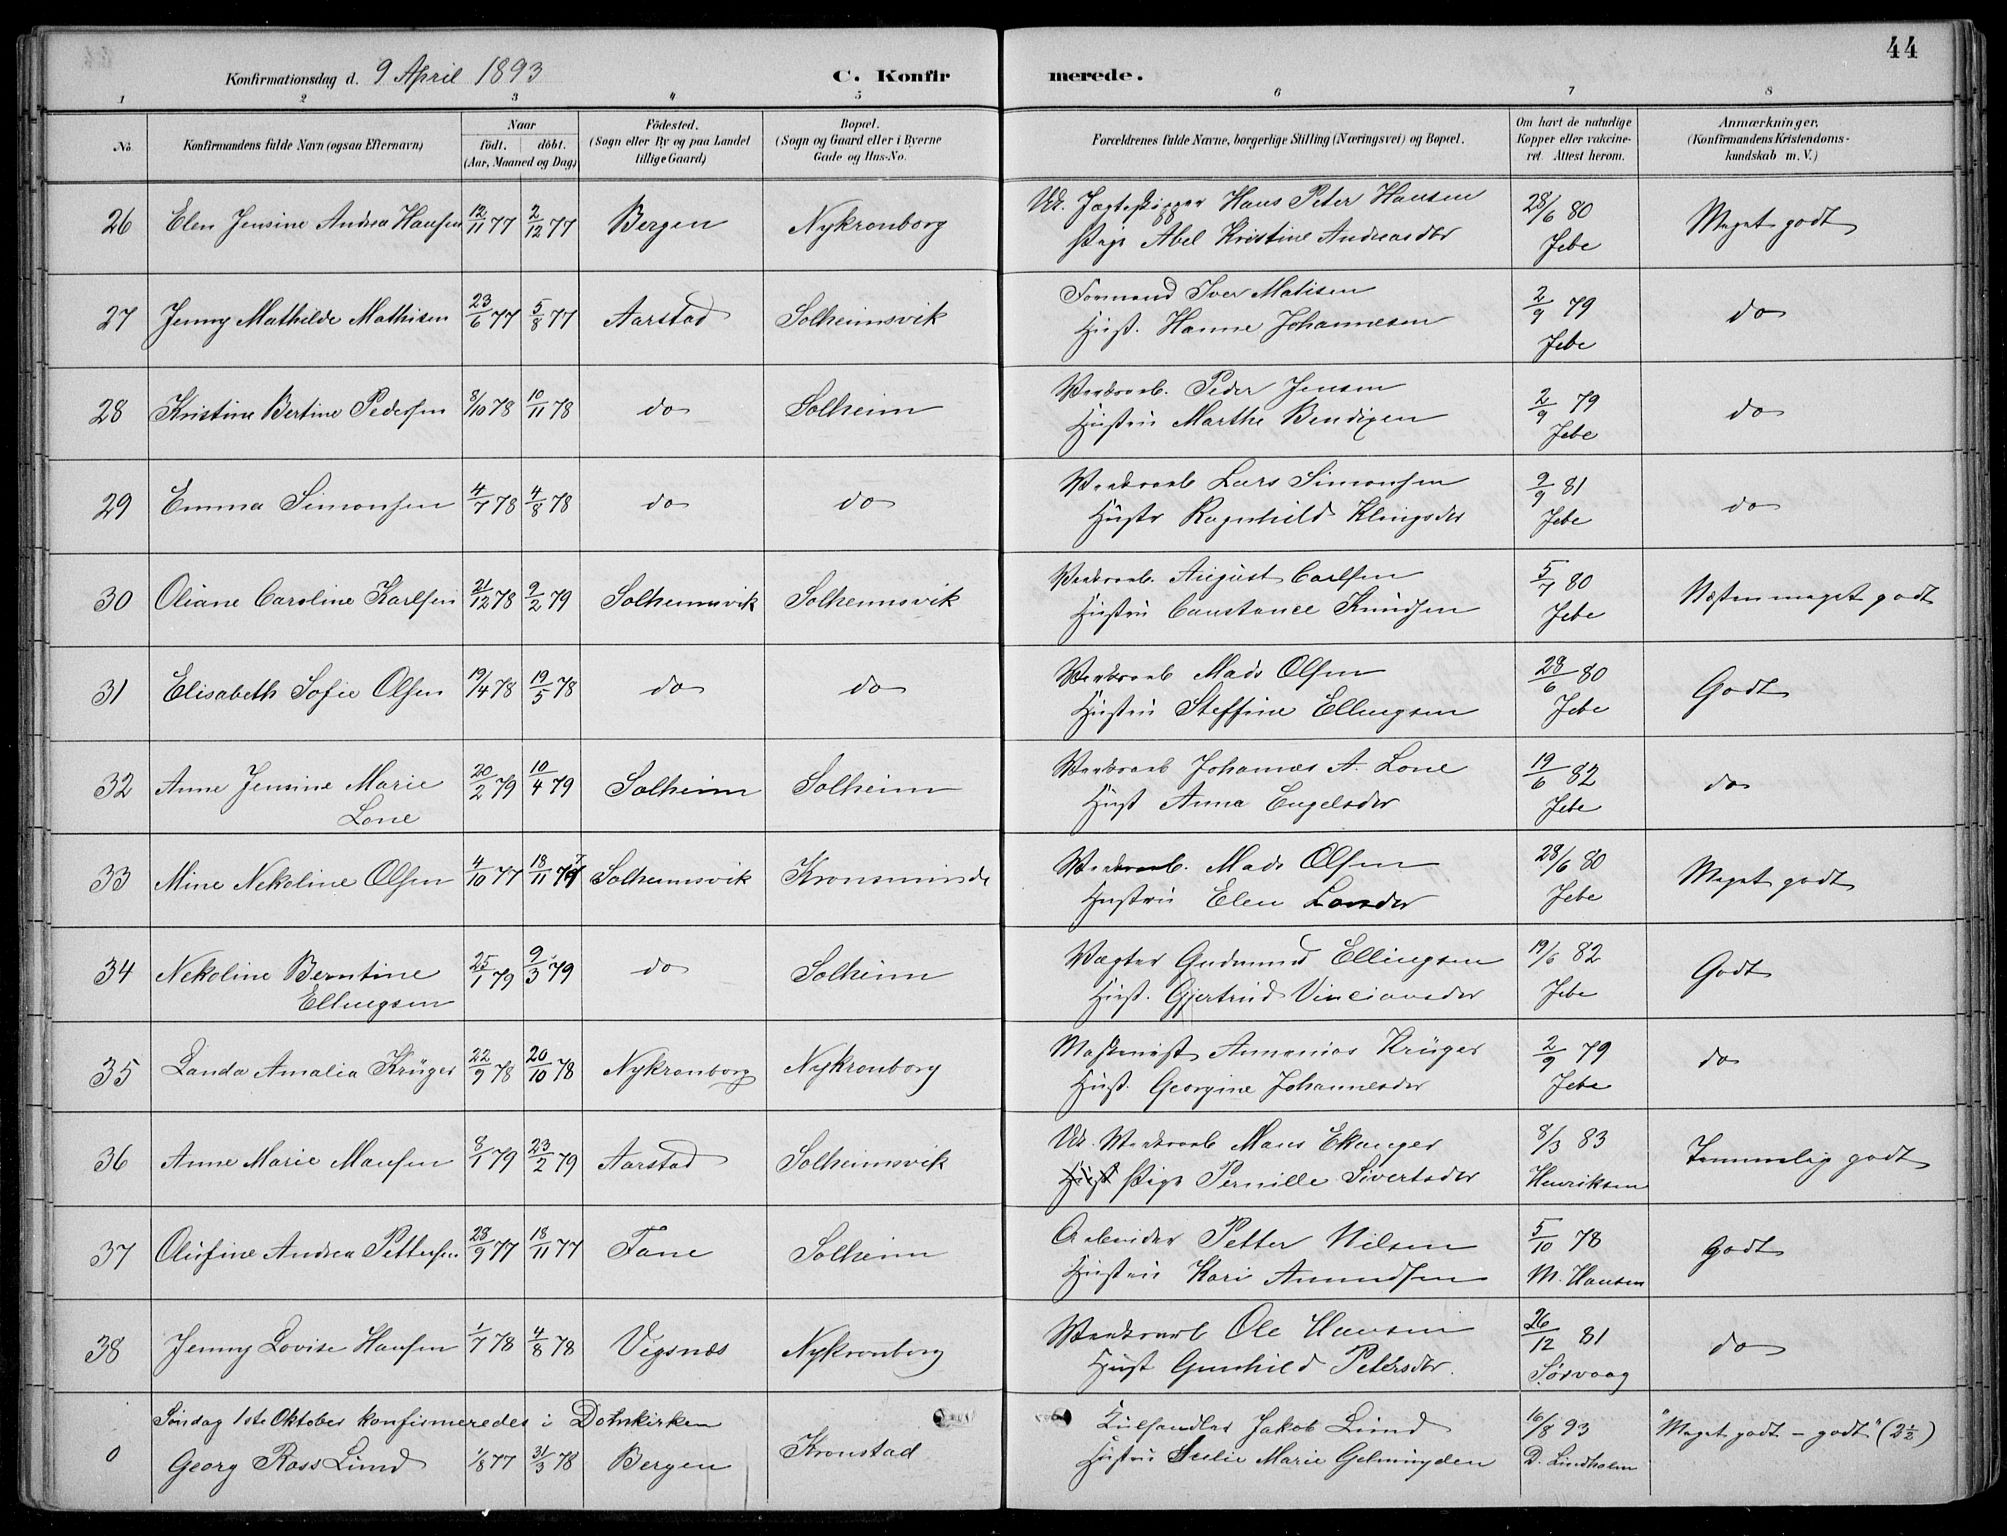 44
Konfirmationsdag d. 9 April 1893
C. Konfirmerede.
1 2 3 4 5 6 7 8
No. Konfirmandens fulde Navn (ogsaa Efternavn) Naar født. døbt. (Aar, Maaned og Dag) Fødested. (Sogn eller By og paa Landet tillige Gaard) Bopæl. (Sogn og Gaard eller i Byerne Gade og Hus-No. Forældrenes fulde Navne, borgerlige Stilling (Næringsvei) og Bopæl. Om havt de naturlige Kopper eller vakcineret. Attest herom. Anmærkninger, (Konfirmandens Kristendomskundskab m. V.)
26 Elen Jensine Andrea Hansen 12/11 77 2/12 77 Bergen Nykronborg Uk. Jægteskipper Hans Peter Hansen 28/6 80 Meget godt
Pige Abel Kristine Andreasdtr Jebe
27 Jenny Mathilde Mathisen 23/6 77 5/8 77 Aarstad Solheimsvik Formand Iver Matisen 2/9 79 do
Hust. Hanne Johannesen Jebe
28 Kristine Bertine Pedersen 8/10 78 10/11 78 do Solheim Værksarb. Peder Jensen 2/9 79 do
Hustru Marthe Bendixen Jebe
29 Emma Simonsen 4/7 78 4/8 78 do do Værksarb Lars Simonsen 2/9 81 do
Hustr Ragnhild Klingsdtr Jebe
30 Oliane Caroline Karlsen 21/12 78 9/2 79 Solheimsvik Solheimsvik Værksarb. August Carlsen 5/7 80 Næsten meget godt
Hustru Constance Knudsen Jebe
31 Elisabeth Sofie Olsen 19/4 78 19/5 78 do do Værksarb Mads Olsen 28/6 80 Godt
Hustru Steffine Ellingsen Jebe
32 Anne Jensine Marie 20/2 79 10/4 79 Solheim Solheim Værksarb Johannes A. Lone 19/6 82 do
Lone Hust Anna Engelsdtr Jebe
33 Mine Nekoline Olsen 4/10 77 18/11 77 Solheimsvik Kronsminde Værksarb. Mads Olsen 28/6 80 Meget godt
Hustru Elen Larsdtr Jebe
34 Nekoline Berntine 25/1 79 9/3 79 do Solheim Vægter Gudmund Ellingsen 19/6 82 Godt
Ellingsen Hust. Gjertrud Jebe
35 Landa Amalia Krüger 22/9 78 20/10 78 Nykronborg Nykronborg Maskinist Annanias Krüger 2/9 79 do
Hust. Georgine Johannesdtr Jebe
36 Anne Marie Mansen 8/1 79 23/2 79 Aarstad Solheimsvik Uk. Værksarb Mans Ekanger 8/3 83 Temmelig godt
Hust Pige Pernille Sivertsdtr Henriksen
37 Olufine Andrea Pettersen 28/9 77 18/11 77 Fane Solheim Arbeider Petter Nilsen 5/10 78 Godt
Hustru Kari Amundsen M. Hansen
38 Jenny Lovise Hansen 1/7 78 4/8 78 Vigsnæs Nykronborg Værksarb Ole Hansen 26/12 81 do
Hust Gunhild Petersdtr. Sørvaag
Søndag 1ste Oktober konfirmeredes i Domkirken Kulhandler Jakob Lund 16/8 93 "Meget godt - godt" (2½)
0 Georg Ross Lund 1/8 77 31/3 78 Bergen Kronstad Hustru Julie Marie Gelmuyden D. Lindholm